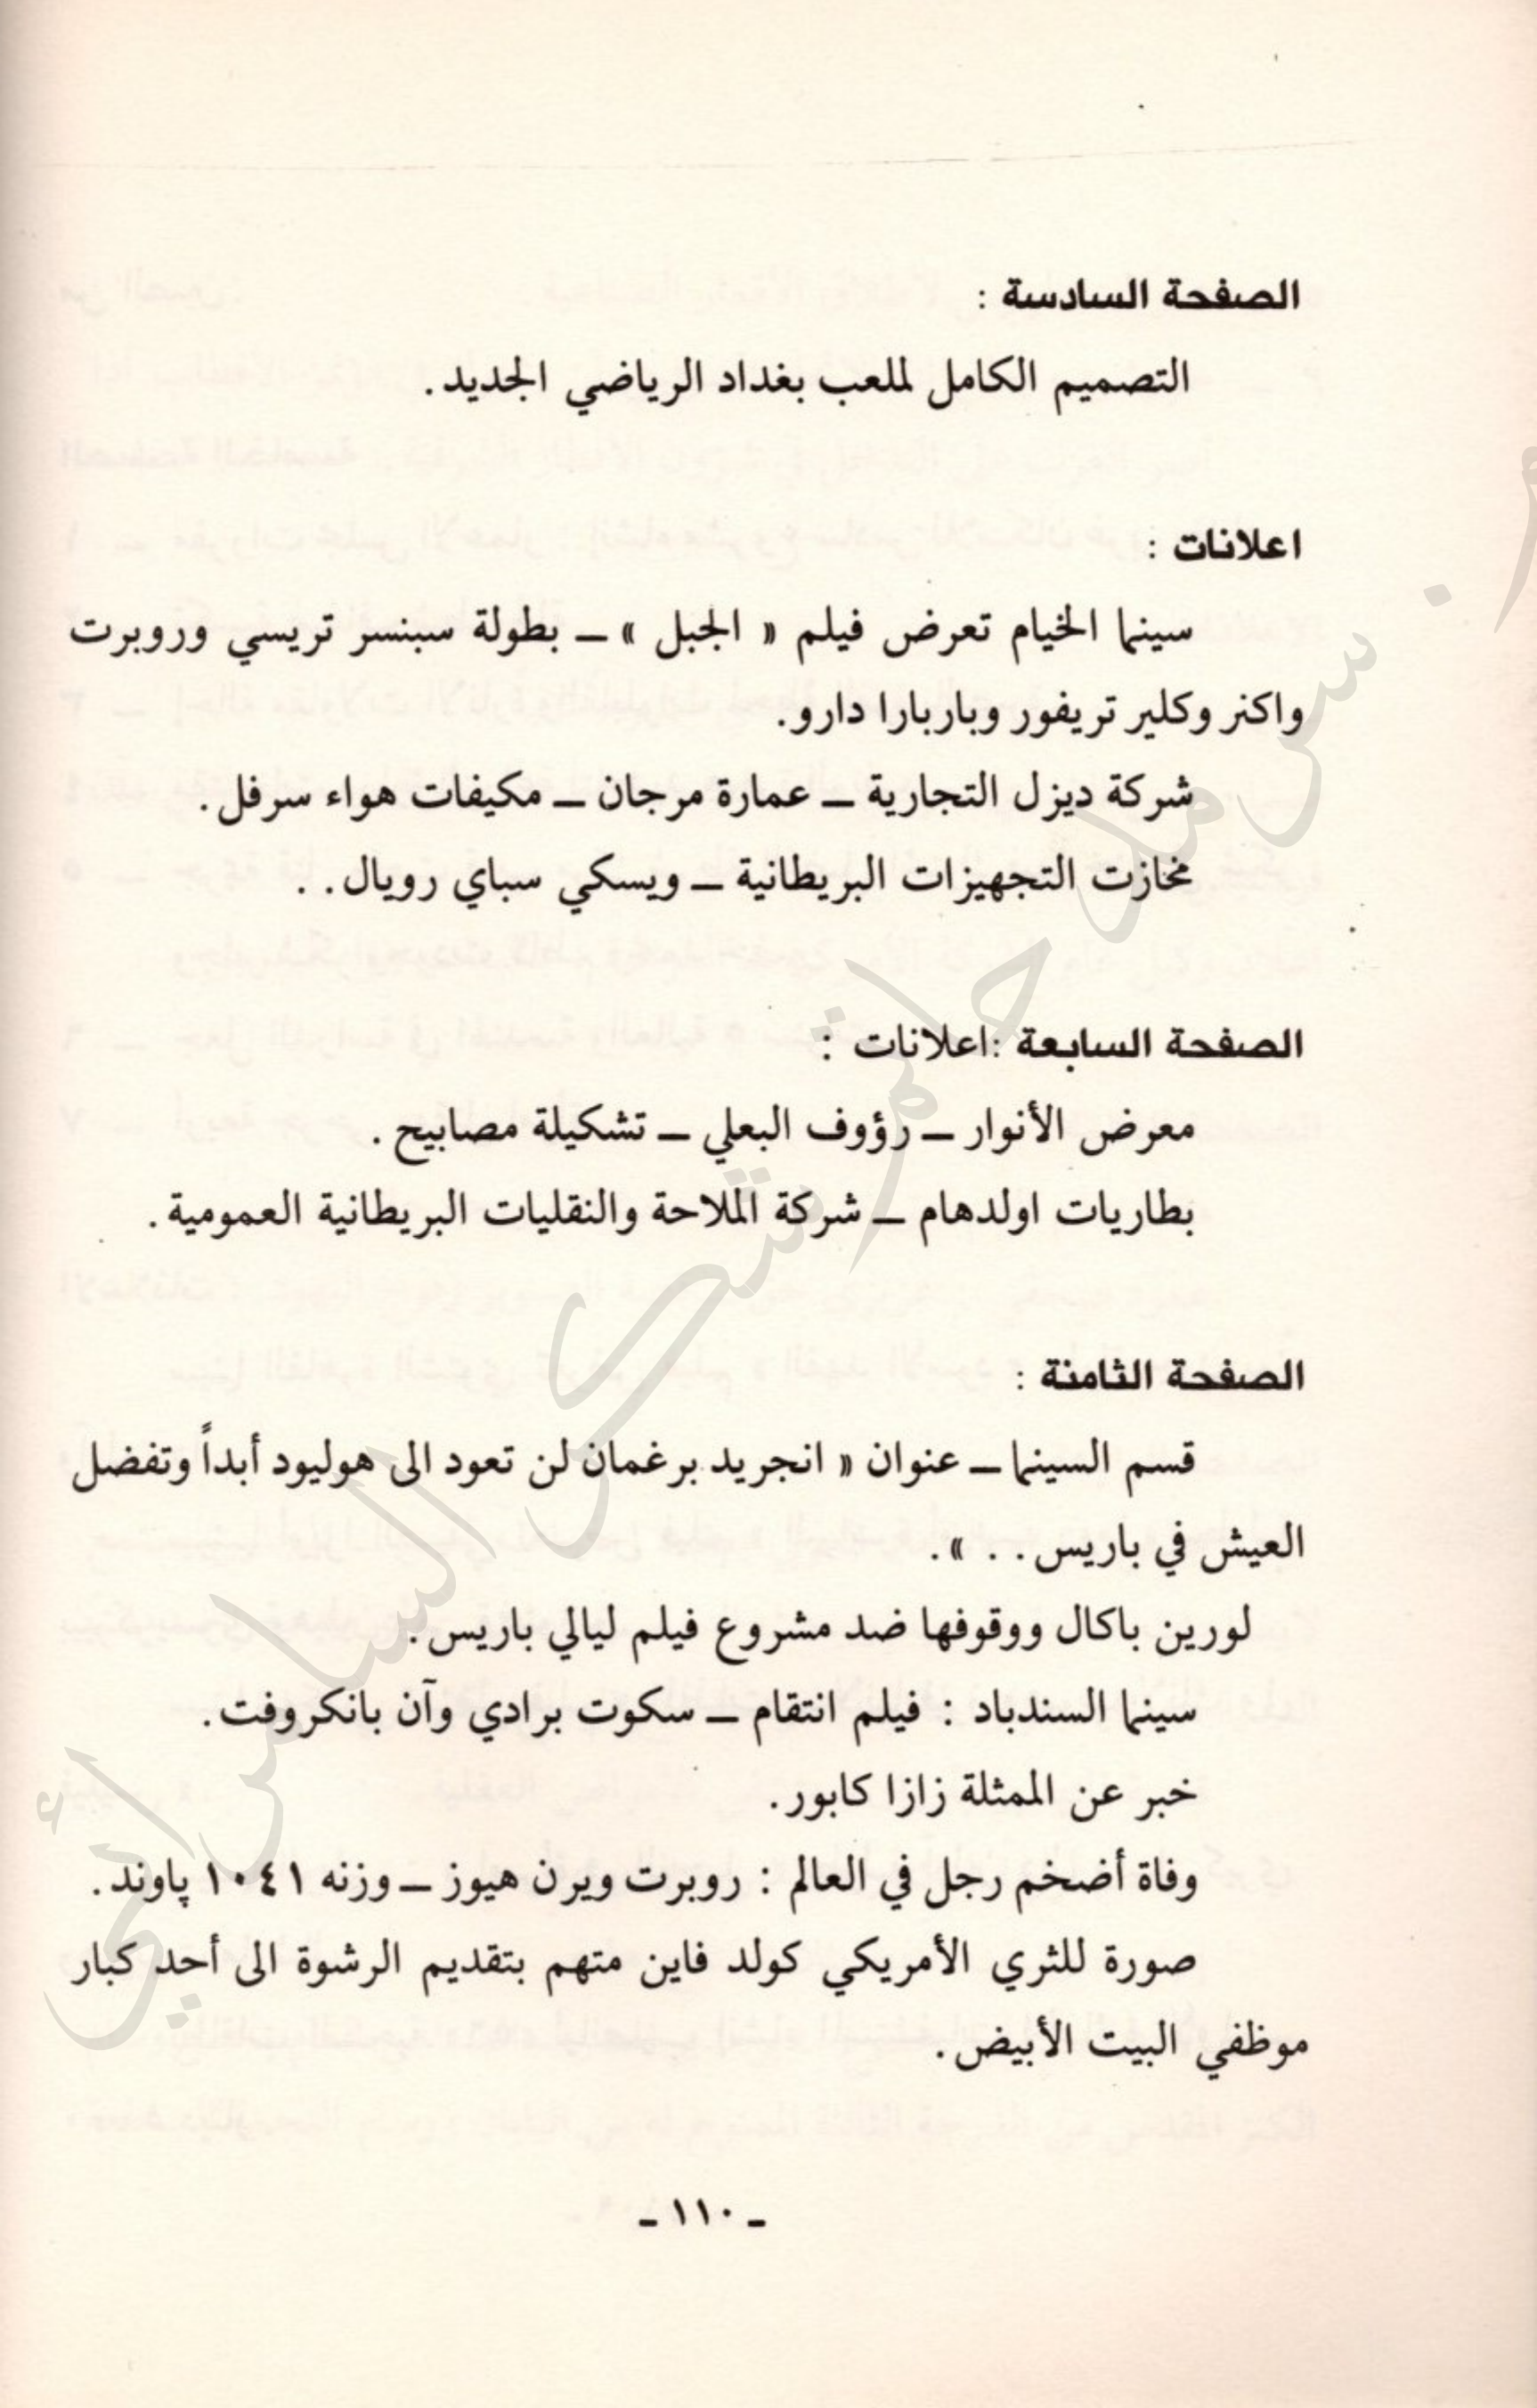 الصفحة السادسة :
التصميم الكامل لملعب بغداد الرياضي الجديد.
اعلانات :
سينما الخيام تعرض فيلم « الجبل » ــ بطولة سبنسر تريسي وروبرت
واكنر وكلير تريفور وباربارا دارو.
شركة ديزل التجارية ــ عمارة مرجان ــ مكيفات هواء سرفل.
مخازت التجهيزات البريطانية ــ ويسكي سباي رويال. .
الصفحة السابعة :اعلانات :
معرض الأنوار ــ رؤوف البعلي ــ تشكيلة مصابيح.
بطاريات اولدهام ــ شركة الملاحة والنقليات البريطانية العمومية.
الصفحة الثامنة :
قسم السينما ــ عنوان « انجريد برغمان لن تعود الى هوليود أبداً وتفضل
العيش في باريس. . . ».
لورين باكال ووقوفها ضد مشروع فيلم ليالي باريس.
سينما السندباد : فيلم انتقام ــ سكوت برادي وآن بانكروفت.
خبر عن الممثلة زازا كابور.
وفاة أضخم رجل في العالم : روبرت ويرن هيوز ــ وزنه ١٠٤١ پاوند.
صورة للثري الأمريكي كولد فاين متهم بتقديم الرشوة الى أحد كبار
موظفي البيت الأبيض.
ـ ١١٠ ـ